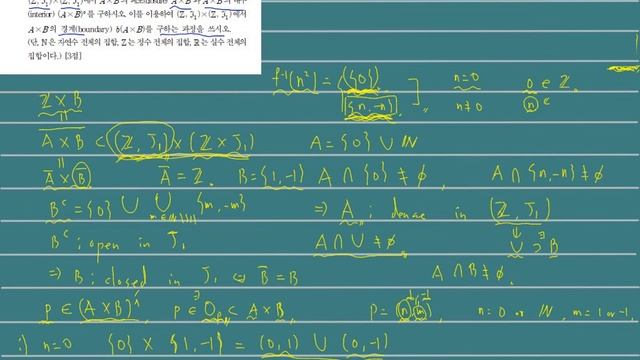 (Z, ℑ₁)×(Z, ℑ₁)에서 A×B의 폐포(closure) A×B와 A×B의 내부
(interior) (A×B)°를 구하시오. 이를 이용하여 (Z, ℑ₁)×(Z, ℑ₁)에서
A×B의 경계(boundary) b(A×B)를 구하는 과정을 쓰시오.
(단, N은 자연수 전체의 집합, Z는 정수 전체의 집합, R는 실수 전체의
집합이다.) [3점]
f⁻¹(n²) = {{0} n=0 0 ∈ Z.
{n, -n} ] n≠0 n ∈
Z × B
||
A × B ⊂ (Z, J₁) × (Z × J₁) A = {0} ∪ IN
||
A × B A = Z. B = {1, -1} A ∩ {0} ≠ ∅, A ∩ {n, -n} ≠ ∅
Bᶜ = {0} ∪ ∪ {m, -m} ⇒ A ; dense in (Z, J₁)
m∈IN\{1}
Bᶜ ; open in J₁ A ∩ U ≠ ∅ U ⊃ B
⇒ B ; closed in J₁ ⇔ B = B A ∩ B ≠ ∅.
p ∈ (A × B)° p ∈ O ⊂ A × B. p = (n, m) n = 0 or IN, m = 1 or -1.
i) n=0 {0} × {1, -1} = (0, 1) ∪ (0, -1)